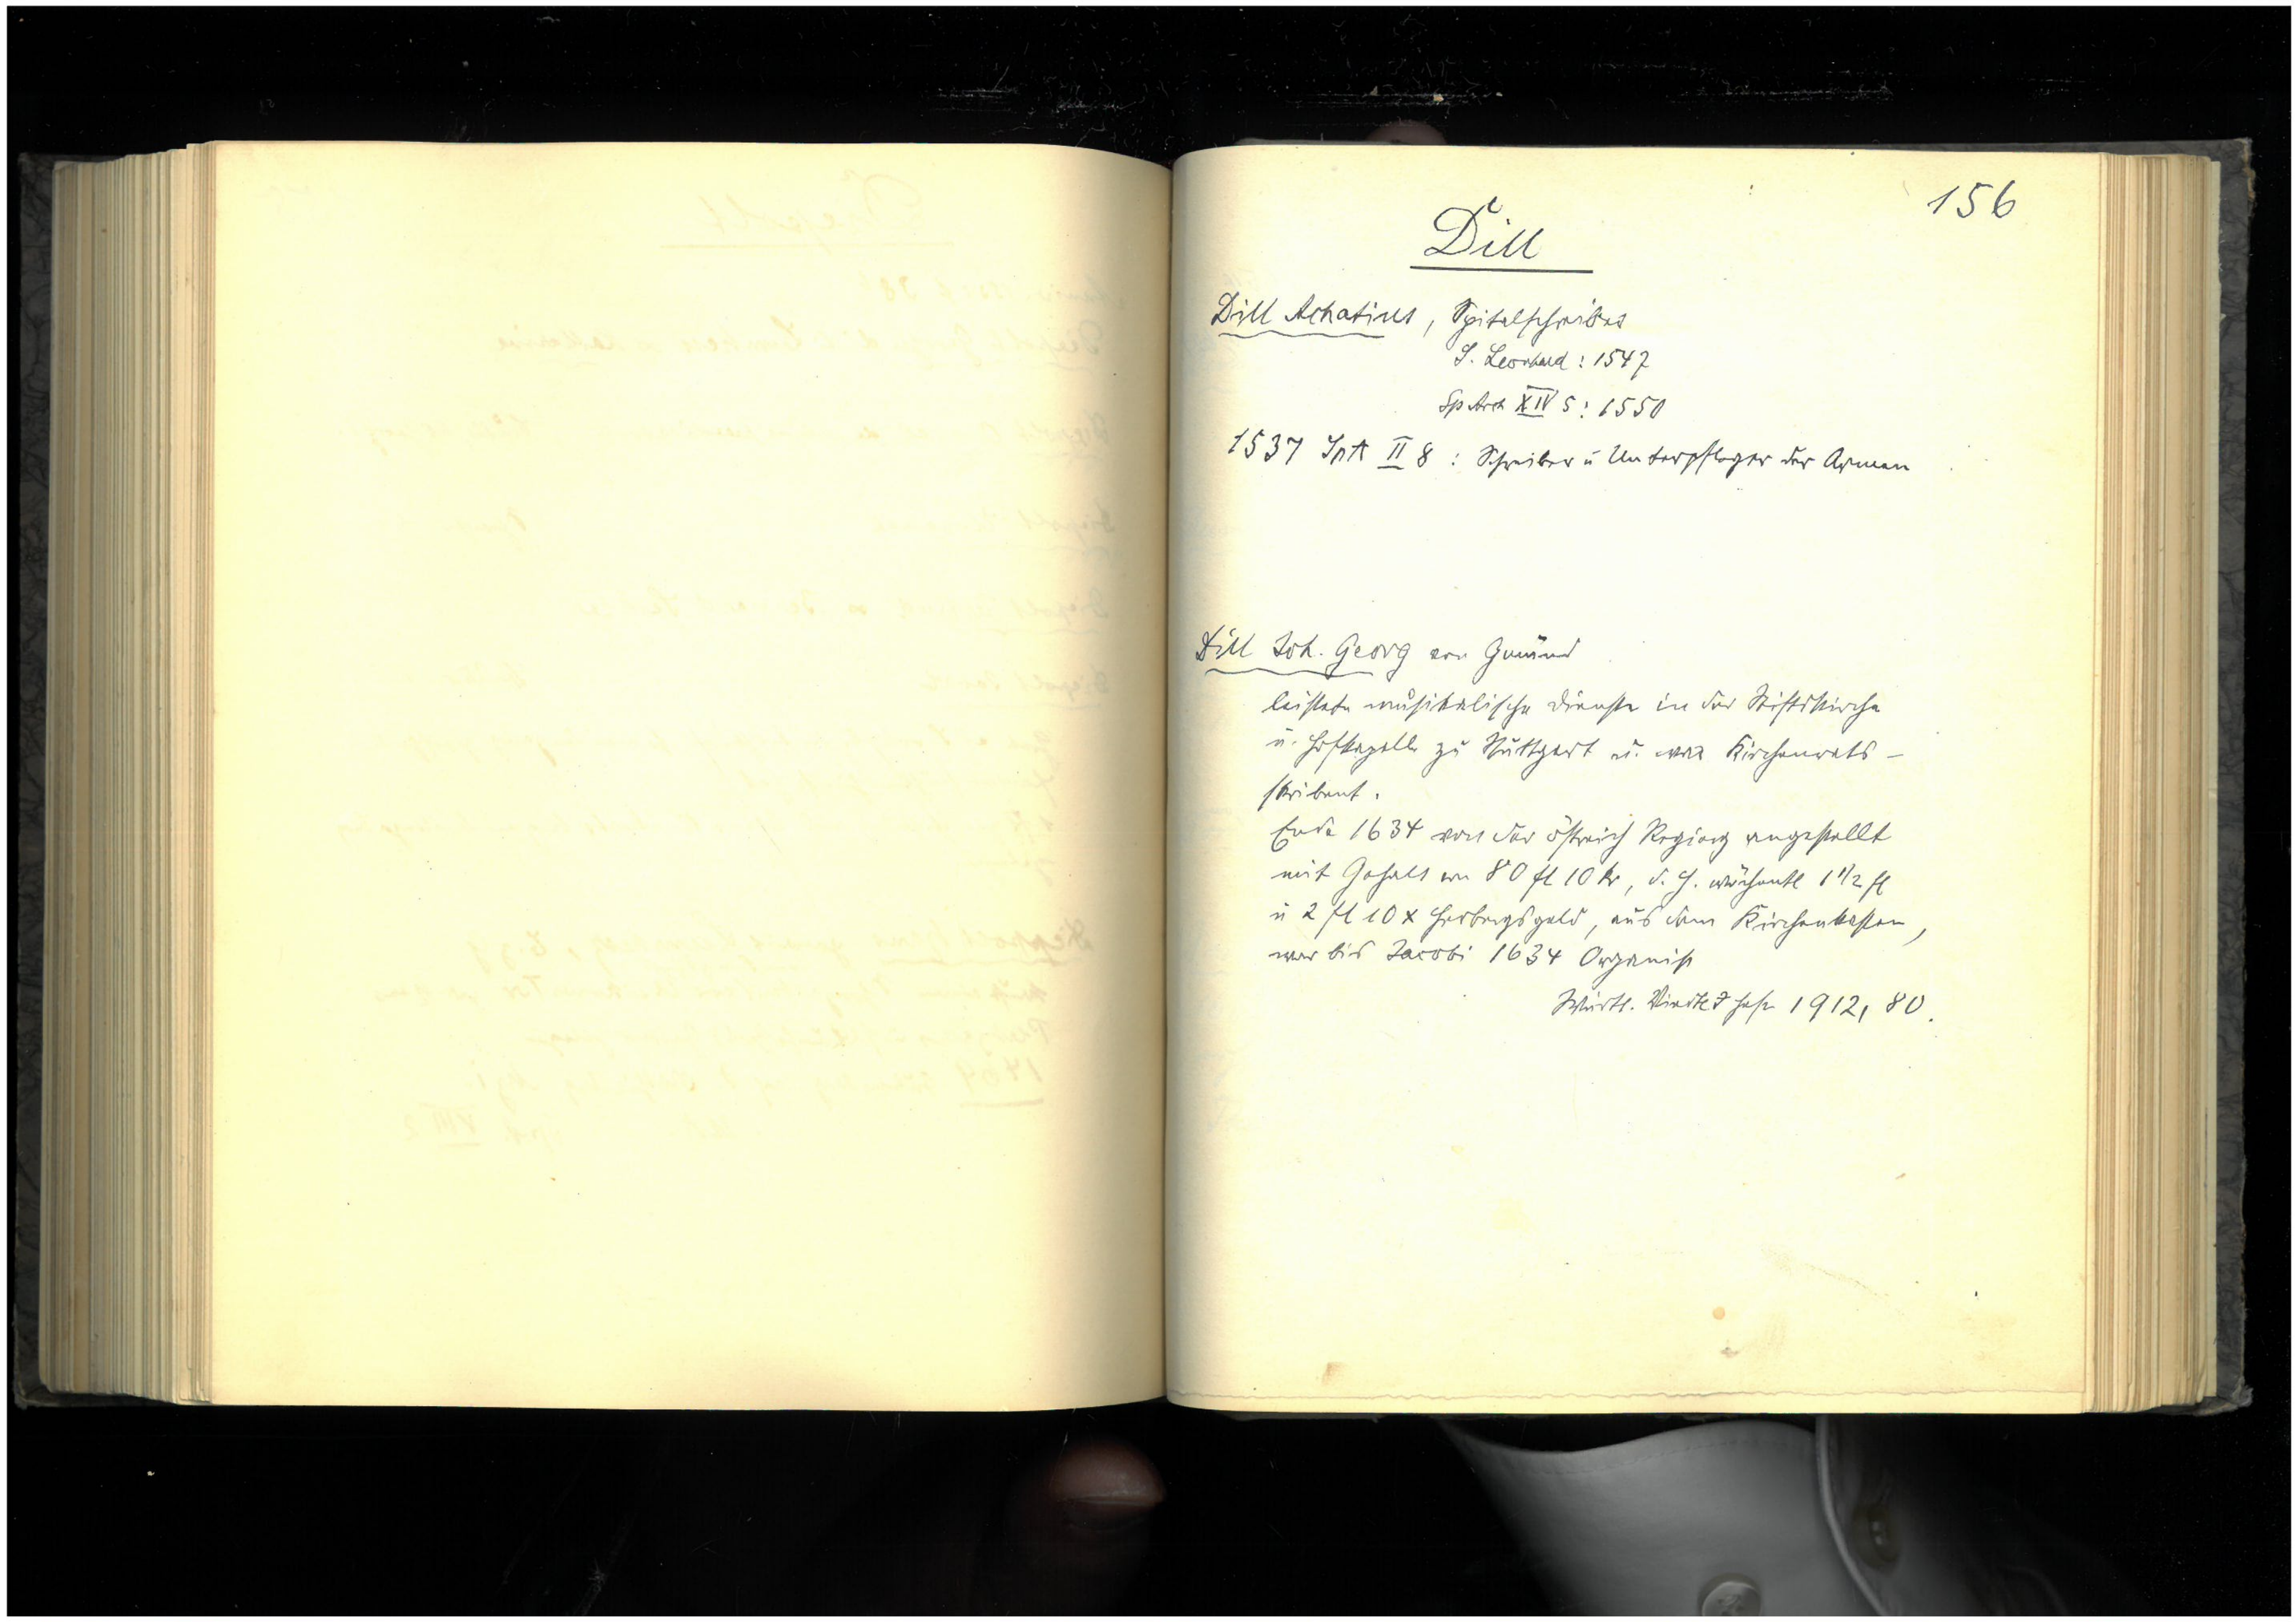 156
Dill
Dill Achatius, Spitalschreiber
S. Leonhard: 1547
Sp Arch XIV 5: 1550
1537 SpA II 8: Schreiber u Unterpfleger der Armen
Dill Joh. Georg von Gmünd
leistete musikalische Dienste in der Stiftskirche
u. Hofkapelle zu Stuttgart u. war Kirchenrats-
skribent.
Ende 1634 von der östreich Regierg angestellt
mit Gehalt von 80 fl 10 kr, d. h. wöchentl 1 1/2 fl
u 2 fl 10 x Herbergsgeld, aus dem Kirchenkasten,
war bis Jacobi 1634 Organist
Württ. Viertel J Hefte 1912, 80.